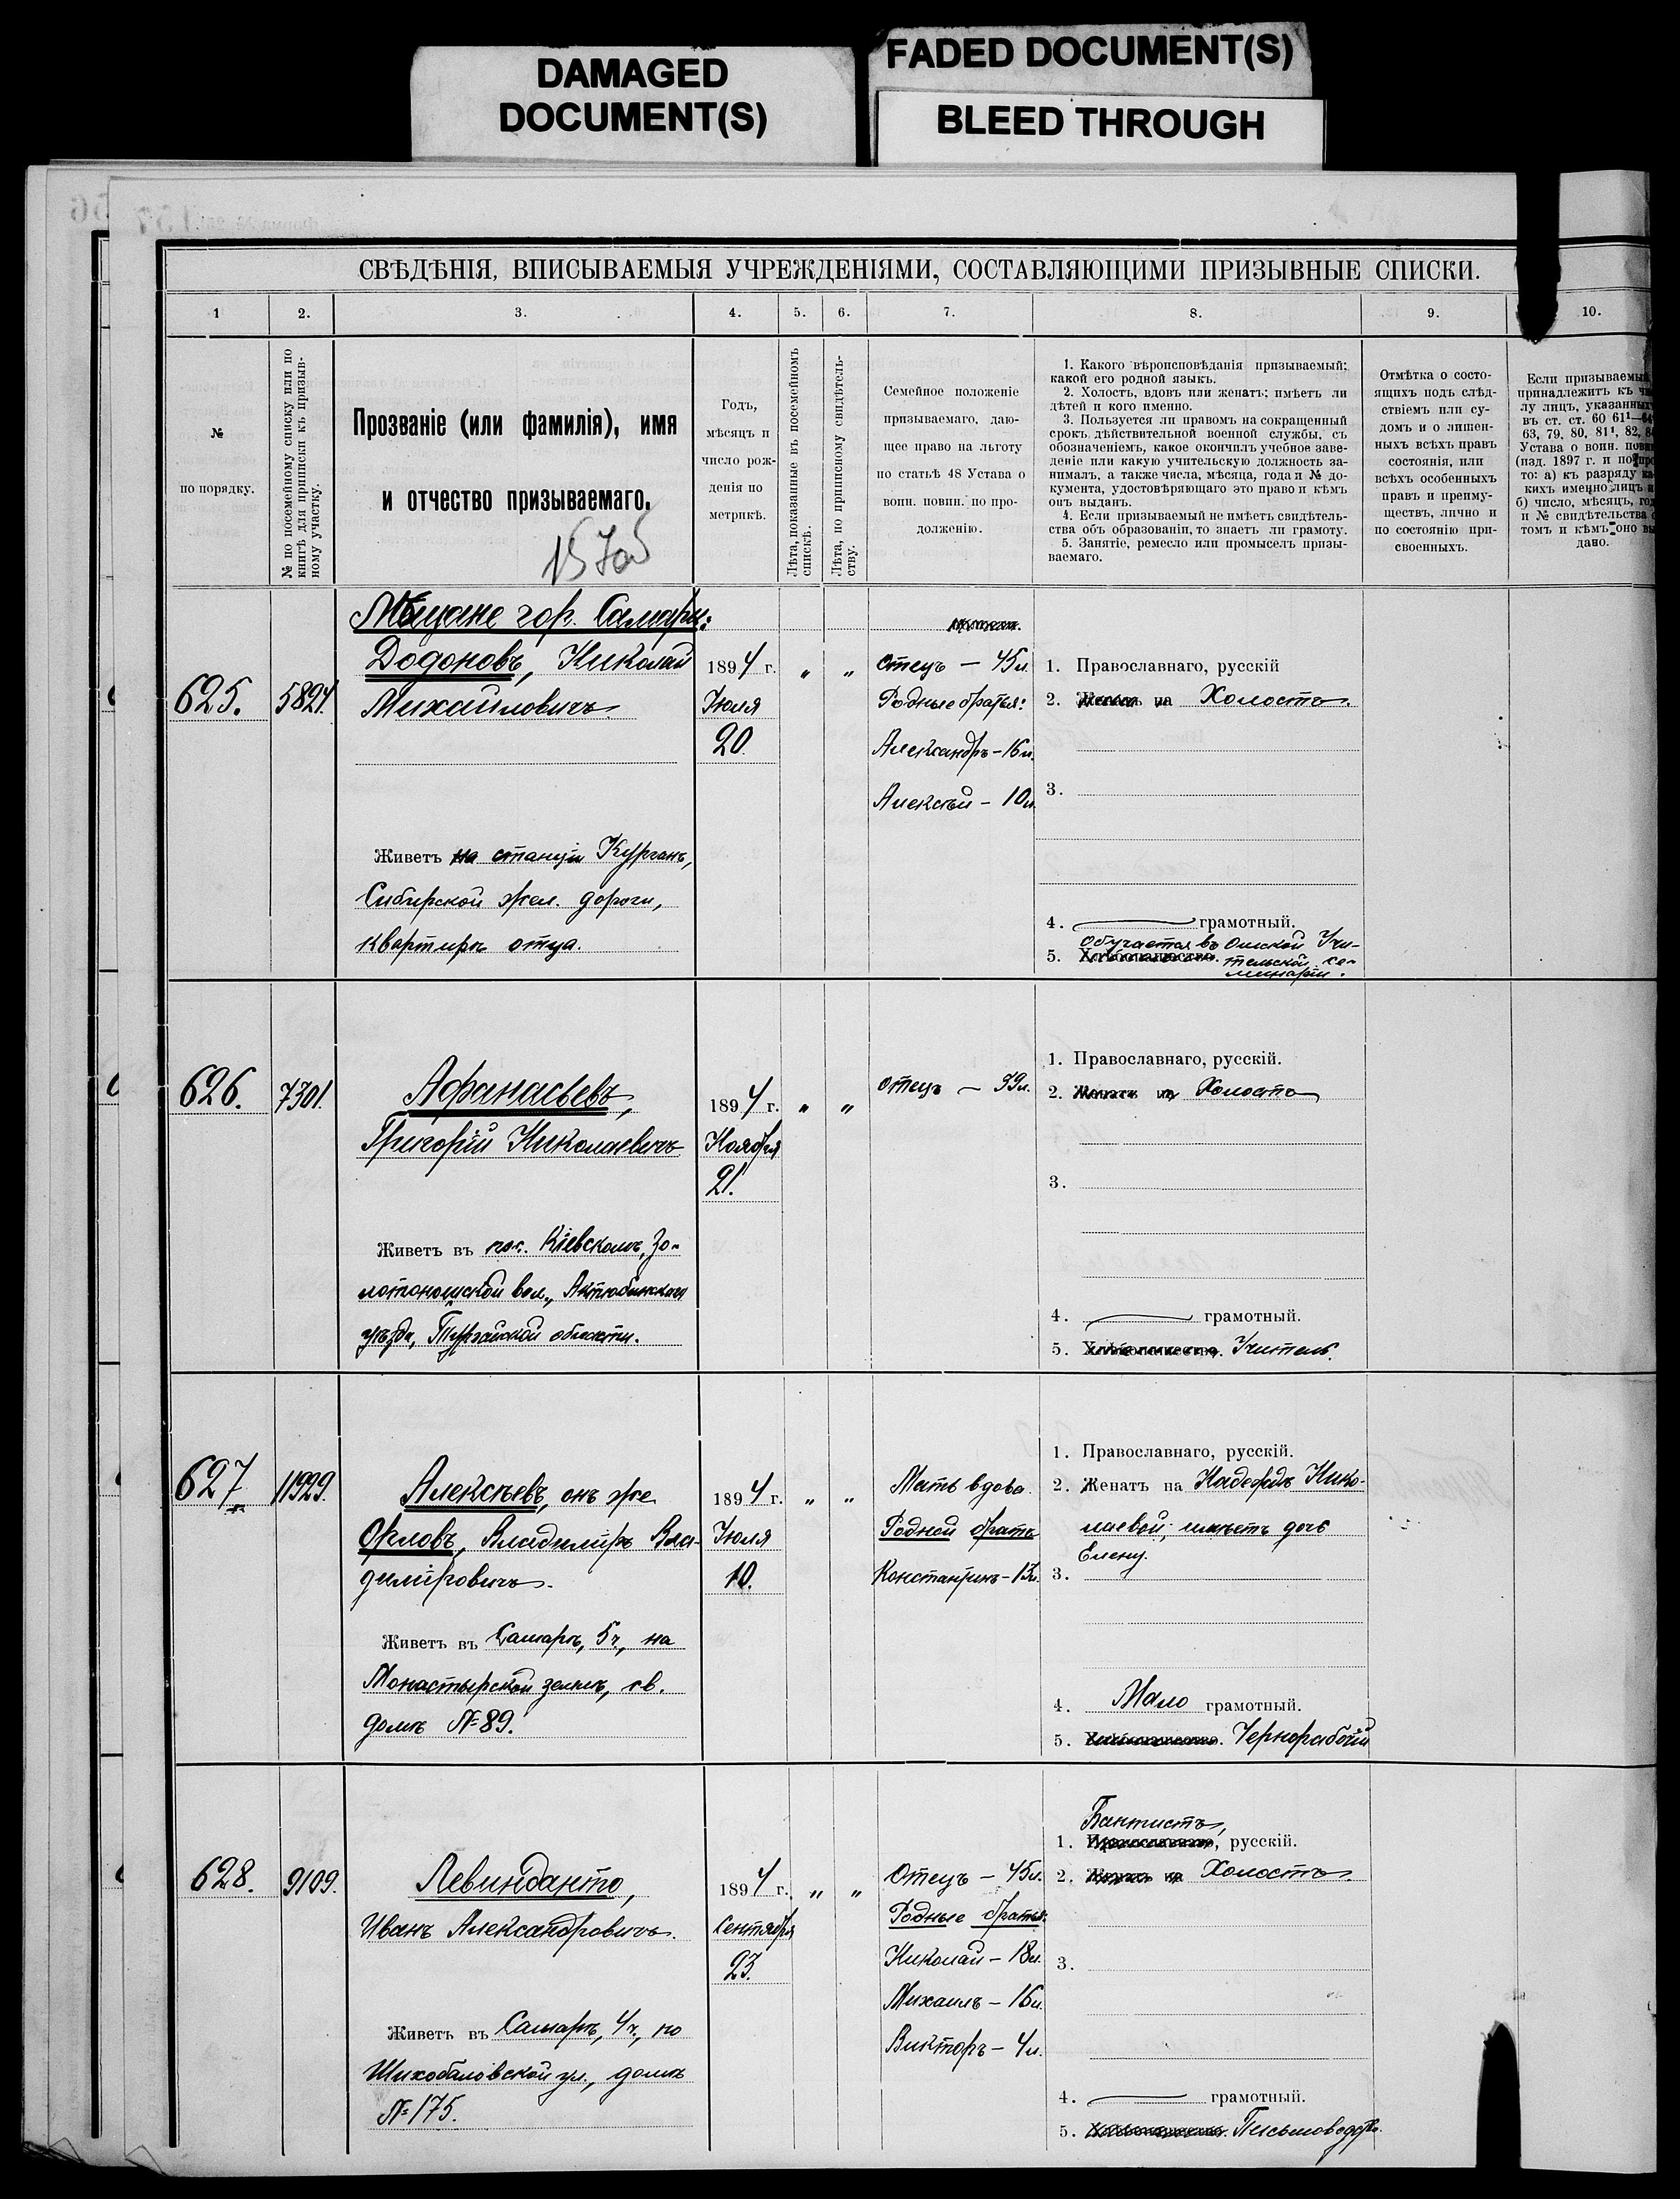 DAMAGED
DOCUMENT(S)
FADED DOCUMENT(S)
BLEED THROUGH
СВѢДѢНІЯ, ВПИСЫВАЕМЫЯ УЧРЕЖДЕНІЯМИ, СОСТАВЛЯЮЩИМИ ПРИЗЫВНЫЕ СПИСКИ.
1 2. 3. 4. 5. 6. 7. 8. 9. 10.
№
по порядку.
№ по посемейному списку или по
книгѣ для приписки къ призыв-
ному участку.
Прозваніе (или фамилія), имя
и отчество призываемаго.
Годъ,
мѣсяцъ и
число рож-
денія по
метрикѣ.
Лѣта, показанные въ посемейномъ
спискѣ.
Лѣта, по приписному свидѣтель-
ству.
Семейное положеніе
призываемаго, даю-
щее право на льготу
по статьѣ 48 Устава о
воин. повин. по про-
долженію.
1. Какого вѣроисповѣданія призываемый;
какой его родной языкъ.
2. Холостъ, вдовъ или женатъ; имѣетъ ли
дѣтей и кого именно.
3. Пользуется ли правомъ на сокращенный
срокъ дѣйствительной военной службы, съ
обозначеніемъ, какое окончилъ учебное заве-
деніе или какую учительскую должность за-
нималъ, а также числа, мѣсяца, года и № до-
кумента, удостовѣряющаго это право и кѣмъ
онъ выданъ.
4. Если призываемый не имѣетъ свидѣтель-
ства объ образованіи, то знаетъ ли грамоту.
5. Занятіе, ремесло или промыселъ призы-
ваемаго.
Отмѣтка о состо-
ящихъ подъ слѣд-
ствіемъ или су-
домъ и о лишен-
ныхъ всѣхъ правъ
состоянія, или
всѣхъ особенныхъ
правъ и преиму-
ществъ, лично и
по состоянію при-
своенныхъ.
Если призываемый
принадлежитъ къ
лу лицъ, указанныхъ
въ ст. ст. 60 61¹—64
63, 79, 80, 81¹, 82,
Устава о воин. повин
(изд. 1897 г. и по
то: а) къ разряду ка
кихъ именно лицъ и
б) число, мѣсяцъ, год
и № свидѣтельства о
томъ и кѣмъ оно вы
дано.
Мѣщане гор. Самары:
625. 5824.
Додоновъ, Николай
Михайловичъ.
Живетъ на станціи Курганъ,
Сибирской жел. дороги,
квартирѣ отца.
1894 г.
Іюля
20.
„ „
Отецъ — 45 л.
Родные братья:
Александръ — 16 л.
Алексѣй — 10 л.
1. Православнаго, русскій
2. Женатъ на Холостъ.
3.
4. грамотный.
обучается въ Омской Учи-
5. Хлѣбопашество. тельской се-
минаріи.
626. 7301.
Афанасьевъ,
Григорій Николаевичъ
Живетъ въ пос. Кіевскомъ, Зо-
лотоношской вол., Актюбинскаго
уѣзда, Тургайской области.
1894 г.
Ноября
21.
„ „
Отецъ — 59 л.
1. Православнаго, русскій.
2. Женатъ на Холостъ
3.
4. грамотный.
5. Хлѣбопашество. Учитель.
627. 11929.
Алексѣевъ, онъ же
Орловъ, Владиміръ Вла-
диміровичъ.
Живетъ въ Самарѣ, 5 ч., на
Монастырской землѣ, св.
домъ № 89.
1894 г.
Іюля
10.
„ „
Мать вдова.
Родной братъ
Константинъ — 13 л.
1. Православнаго, русскій.
2. Женатъ на Надеждѣ Нико-
лаевой; имѣетъ дочь
Елену.
3.
4. Мало грамотный.
5. Хлѣбопашество. Чернорабочій
628. 9109.
Левинданто,
Иванъ Александровичъ.
Живетъ въ Самарѣ, 4 ч., по
Шихобаловской ул., домъ
№ 175.
1894 г.
Сентября
23.
„ „
Отецъ — 45 л.
Родные братья:
Николай — 18 л.
Михаилъ — 16 л.
Викторъ — 4 л.
Баптистъ,
1. Православнаго, русскій.
2. Женатъ на Холостъ.
3.
4. грамотный.
5. Хлѣбопашество. Письмоводство.